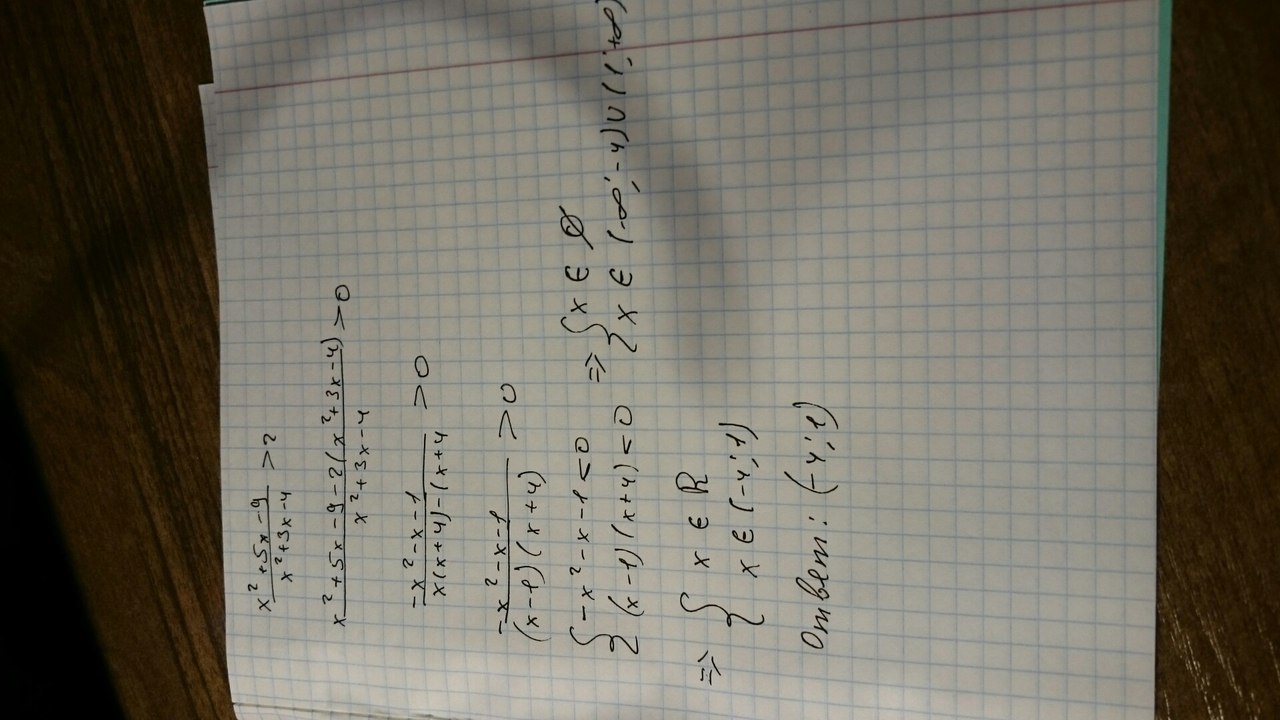 x² + 5x - 9 / x² + 3x - 4 > 2
x² + 5x - 9 - 2(x² + 3x - 4) / x² + 3x - 4 > 0
-x² - x - 1 / x(x+4) - (x+4 > 0
-x² - x - 1 / (x-1)(x+4) > 0
{ -x² - x - 1 < 0 ⇒ { x ∈ ∅
{ (x-1)(x+4) < 0 { x ∈ (-∞; -4) ∪ (1; +∞)
⇒ { x ∈ R
{ x ∈ (-4; 1)
Ответ: (-4; 1)